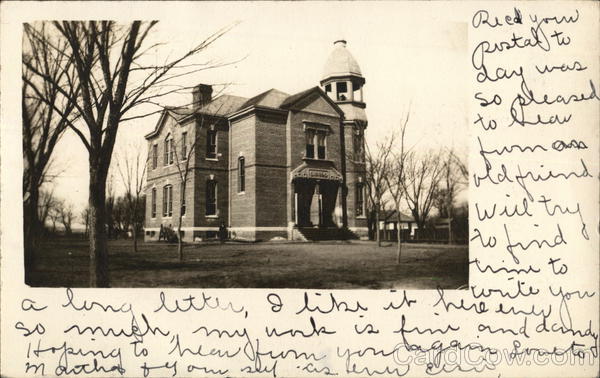 Rec'd your
postal to
day was
so pleased
to hear
from an
old friend.
Will try
to find
time to
write you
a long letter, I like it here ever
so much, my work is fine and dandy
Hoping to hear from you again, Love to
Martha & your self as ever
CardCow.com